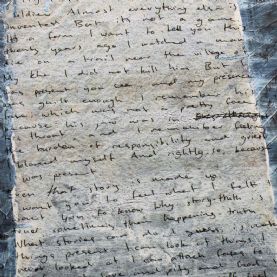 soldier. Almost everything else is
invented. But it's not a game
a form. I want to tell you this
twenty years ago I watched a man
on a trail near the village
Khe. I did not kill him. But
present you see and my presence
guilt enough. I remember
face which was not a pretty face
because his jaw was in
throat and I remember feeling
burden of responsibility
blamed myself. And rightly so, because
was present
even that story is made up
want you to feel what I felt
want you to know why story-truth is
truer sometimes than happening truth
What stories can do I guess is make
things present. I can look at things I
never looked at. I can attach faces
love and pity and God